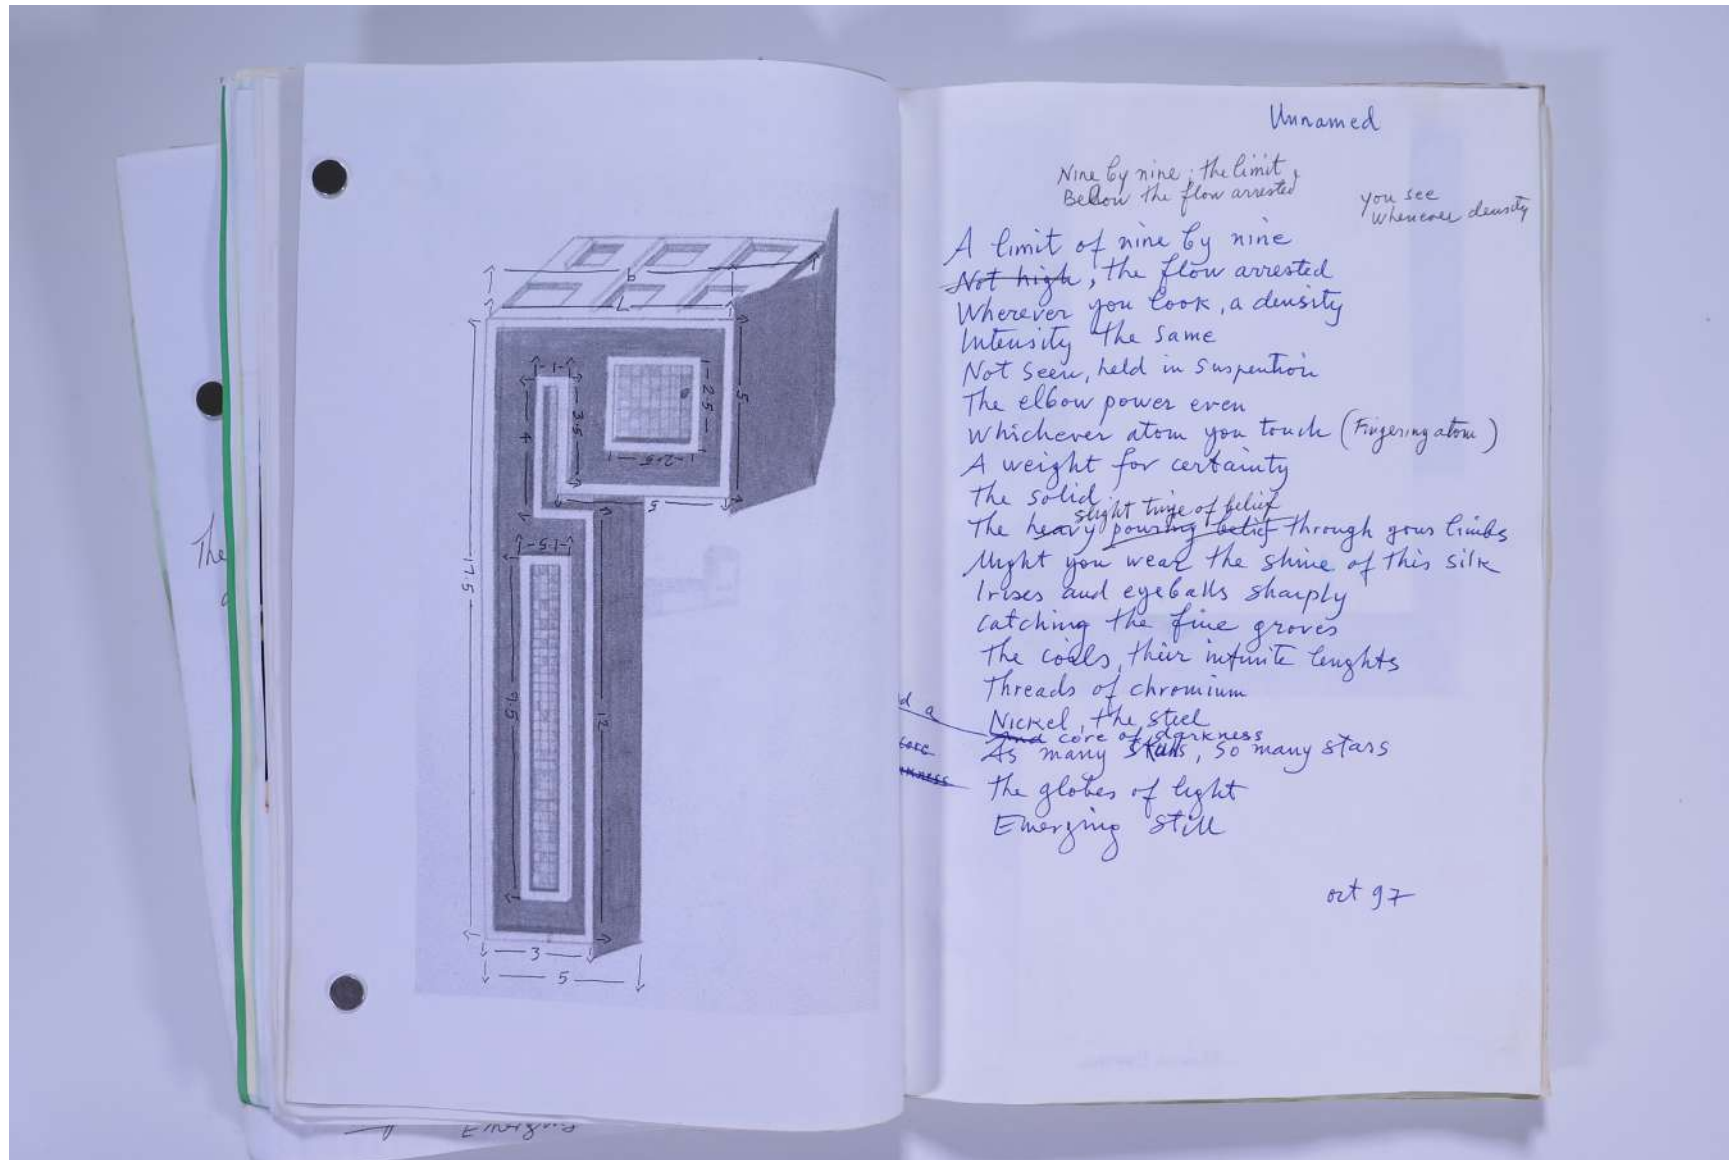 The
6
7
5
1
3.5
4
2.5
2.5
5
1.5
17.5
9.5
12
3
5
Unnamed
Nine by nine; the limit,
Below the flow arrested
you see
Whenever density
A limit of nine by nine
Not high, the flow arrested
Wherever you look, a density
Intensity the same
Not seen, held in suspention
The elbow power even
Whichever atom you touch (Fingering atom)
A weight for certainty
The solid
slight tinge of belief
The heavy pouring belief through your limbs
Might you wear the shine of this silk
Irises and eyeballs sharply
catching the fine groves
The coils, their infinite lenghts
Threads of chromium
d a
Nickel, the steel
And core of darkness
core
As many skulls, so many stars
kness
The globes of light
Emerging still
oct 97
Emerging